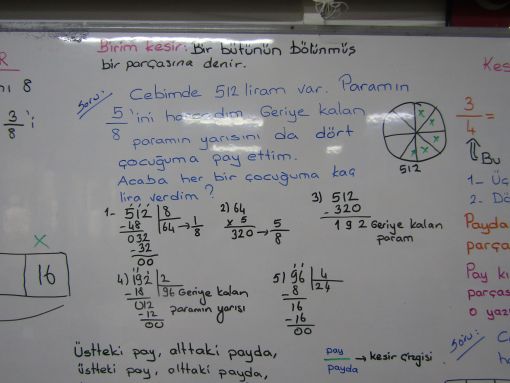 Birim kesir: Bir bütünün bölünmüş
bir parçasına denir.
R
nı 8
3/8 'i
16
x
Soru: Cebimde 512 liram var. Paramın
5/8 'ini harcadım. Geriye kalan
paramın yarısını da dört
çocuğuma pay ettim.
Acaba her bir çocuğuma kaç
lira verdim?
512
1- 512 | 8
-48 64 → 1/8
032
-32
00
2) 64
x 5
320 → 5/8
3) 512
-320
192 Geriye kalan
param
4) 192 | 2
-18 96 Geriye kalan
012 paramın yarısı
-12
00
5) 96 | 4
-8 24
16
-16
00
Üstteki pay, alttaki payda,
üstteki pay, alttaki payda,
pay
payda → kesir çizgisi
Kes
3/4 =
Bu
1- Üç
2- Dö
Payda
parça
Pay kı
parças
0 yazı
Soru: C